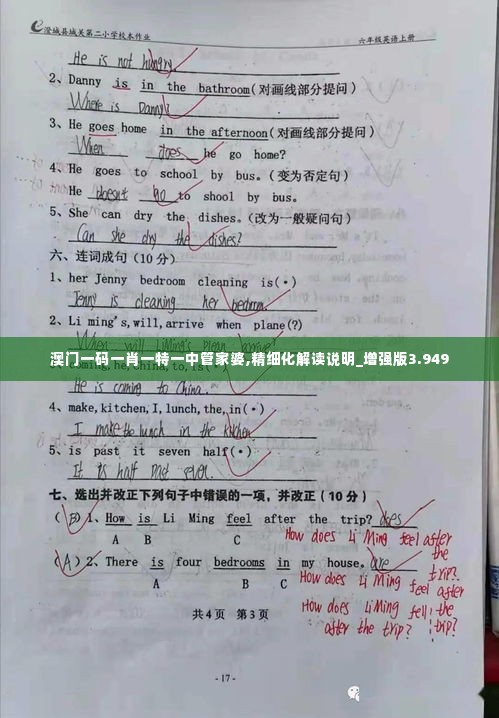 澄城县城关第二小学校本作业 六年级英语上册
He is not hungry.
2、Danny is in the bathroom(对画线部分提问)
Where is Danny?
3、He goes home in the afternoon(对画线部分提问)
When does he go home?
4、He goes to school by bus。(变为否定句)
He doesn't go to shool by bus.
5、She can dry the dishes。(改为一般疑问句)
Can she dry the dishes?
六、连词成句(10分)
1、her Jenny bedroom cleaning is(·)
Jenny is cleaning her bedroom.
2、Li ming's,will,arrive when plane(?)
澳门一码一肖一特一中管家婆,精细化解读说明_增强版3.949
He is coming to China.
4、make,kitchen,I,lunch,the,in(·)
I make the lunch in the kitchen
5、is past it seven half(·)
It is half past seven.
七、选出并改正下列句子中错误的一项，并改正(10分)
(B)1、How is Li Ming feel after the trip? does
A B C
How does Li Ming feel after the trip?
(A)2、There is four bedrooms in my house。are
A B C
How does Li Ming feel after
How does Li Ming fell the
after the trip? trip?
共4页 第3页
-17-